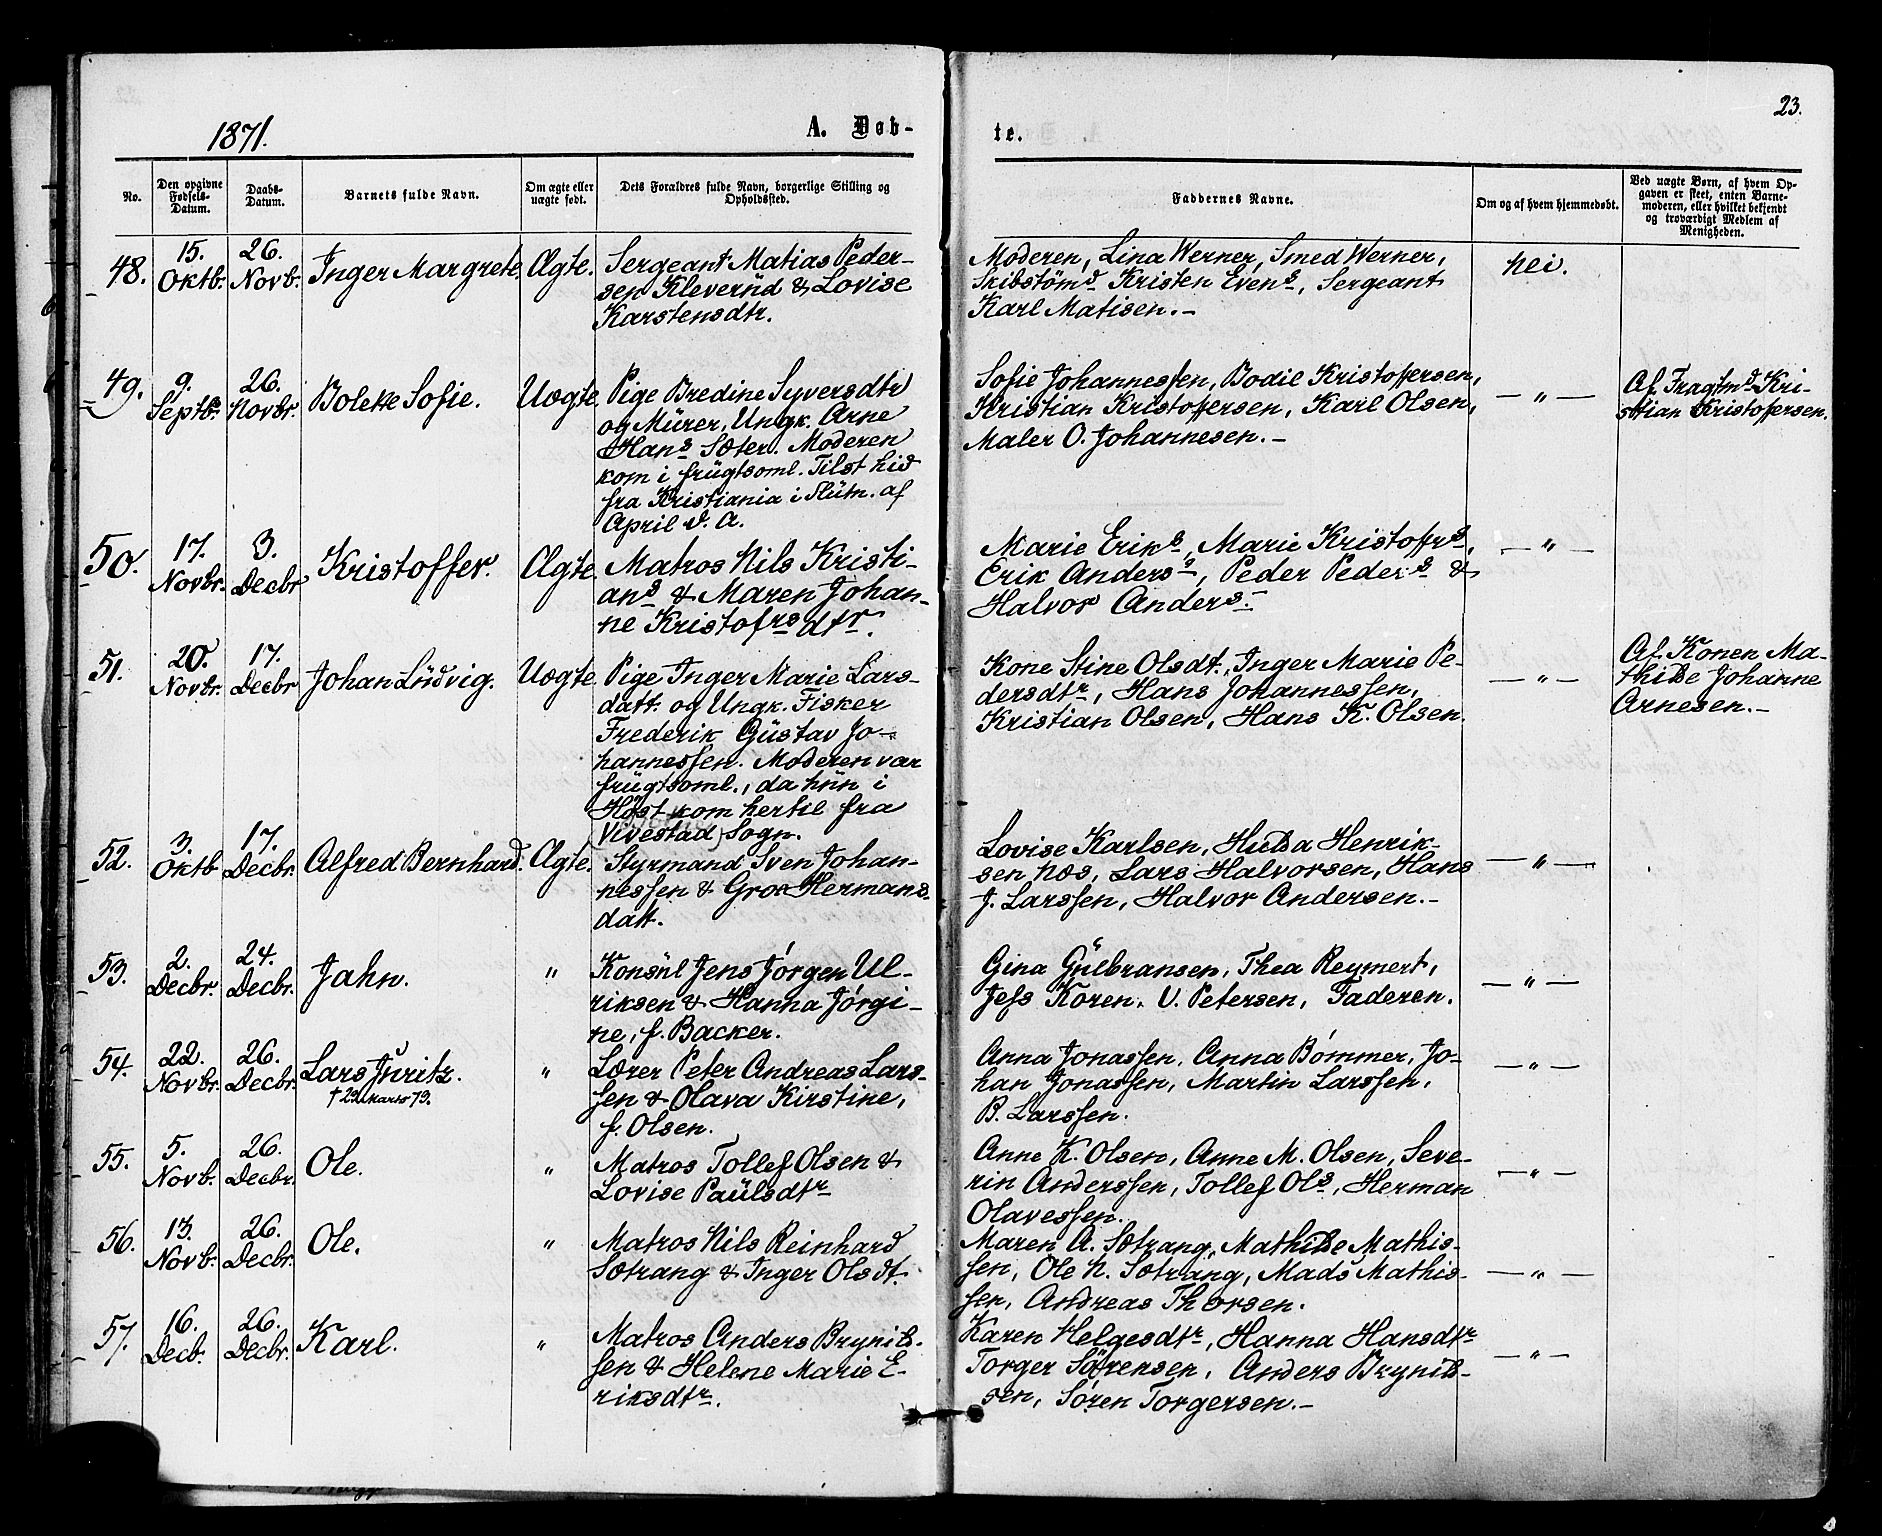 23.
1871.
A. Døb-
te.
No.
Den opgivne Fødsels-Datum.
Daabs-Datum.
Barnets fulde Navn.
Om ægte eller uægte født.
Dets Forældres fulde Navn, borgerlige Stilling og Opholdssted.
Faddernes Navne.
Om og af hvem hjemmedøbt.
Ved uægte Børn, af hvem Op-
gaven er skeet, enten Barne-
moderen, eller hvilket bekjendt
og troværdigt Medlem af
Menigheden.
48. 15. Oktb. 26. Novb. Inger Margrete. Ægte.
Sergeant Matias Peder-
sen Klevernd & Lovise
Karstensdtr.
Moderen, Lina Werner, Smed Werner,
Skibstømd Kristen Evens, Sergeant
Karl Matisen.-
nei.
49. 9. Septb. 26. Novbr. Bolette Sofie. Uægte.
Pige Bredine Syversdtr
og Mürer, Ungk. Arne
Hans Sæter. Moderen
kom i frügtsoml. Tilst hid
fra Kristiania i Slütn. af
April d. A.
Sofie Johannessen, Bodil Kristoffersen,
Kristian Kristoffersen, Karl Olsen,
Maler O. Johannesen.-
— " —
Af Fragtmd Kri-
stian Kristoffersen.
50. 17. Novbr. 3. Decbr Kristoffer. Ægte.
Matros Nils Kristi-
ans & Maren Johan-
ne Kristofrsdtr.
Marie Eriks, Marie Kristoffrs,
Erik Anders, Peder Peders &
Halvor Anders.-
— " —
51. 20. Novbr. 17. Decbr Johan Lüdvig. Uægte.
Pige Inger Marie Lars-
datt. og Ungk. Fisker
Frederik Güstav Jo-
hannessen. Moderen var
frügtsoml., da hün i
Høst kom hertil fra
Vivestad Sogn.
Kone Stine Olsdt., Inger Marie Pe-
dersdtr, Hans Johannessen,
Kristian Olsen, Hans K. Olsen.
— " —
Af Konen Ma-
thilde Johanne
Arnesen.-
52. 3. Oktb 17. Decbr. Alfred Bernhard. Ægte.
Styrmand Sven Johan-
nessen & Gro Hermans-
datt.
Lovise Karlsen, Hulda Henrik-
sen Næs, Lars Halvorsen, Hans
J. Larssen, Halvor Andersen.-
— " —
53. 2. Decbr. 24. Decbr. Jahn. "
Konsül Jens Jørgen Ul-
riksen & Hanna Jørgi-
ne, f. Backer.
Gina Gülbransen, Thea Reymert,
Jess Koren, U. Petersen, Faderen.
— " —
54. 22. Novbr. 26. Decbr. Lars Juritz. "
† 29. Marts 79.
Lærer Peter Andreas Lars-
sen & Olava Kirstine,
f. Olsen.
Anna Jonassen, Anna Bømmer, Jo-
han Jonassen, Martin Larssen,
B. Larssen.
— " —
55. 5. Novb. 26. Decbr. Ole. "
Matros Tollef Olsen &
Lovise Paülsdtr
Anne K. Olsen, Anne M. Olsen, Seve-
rin Anderssen, Tollef Ols, Herman
Olavessen.
— " —
56. 13. Novbr. 26. Decbr. Ole. "
Matros Nils Reinhard
Sætrang & Inger Olsdt.
Maren A. Sætrang, Mathilde Mathis-
sen, Ole N. Sætrang, Mads Mathis-
sen, Andreas Thorsen.
— " —
57. 16. Decb. 26. Decbr. Karl. "
Matros Anders Brynils-
sen & Helene Marie E-
riksdtr.
Karen Helgesdtr, Hanna Hansdtr
Torger Sørensen, Anders Brynils-
sen, Søren Torgersen.-
— " —